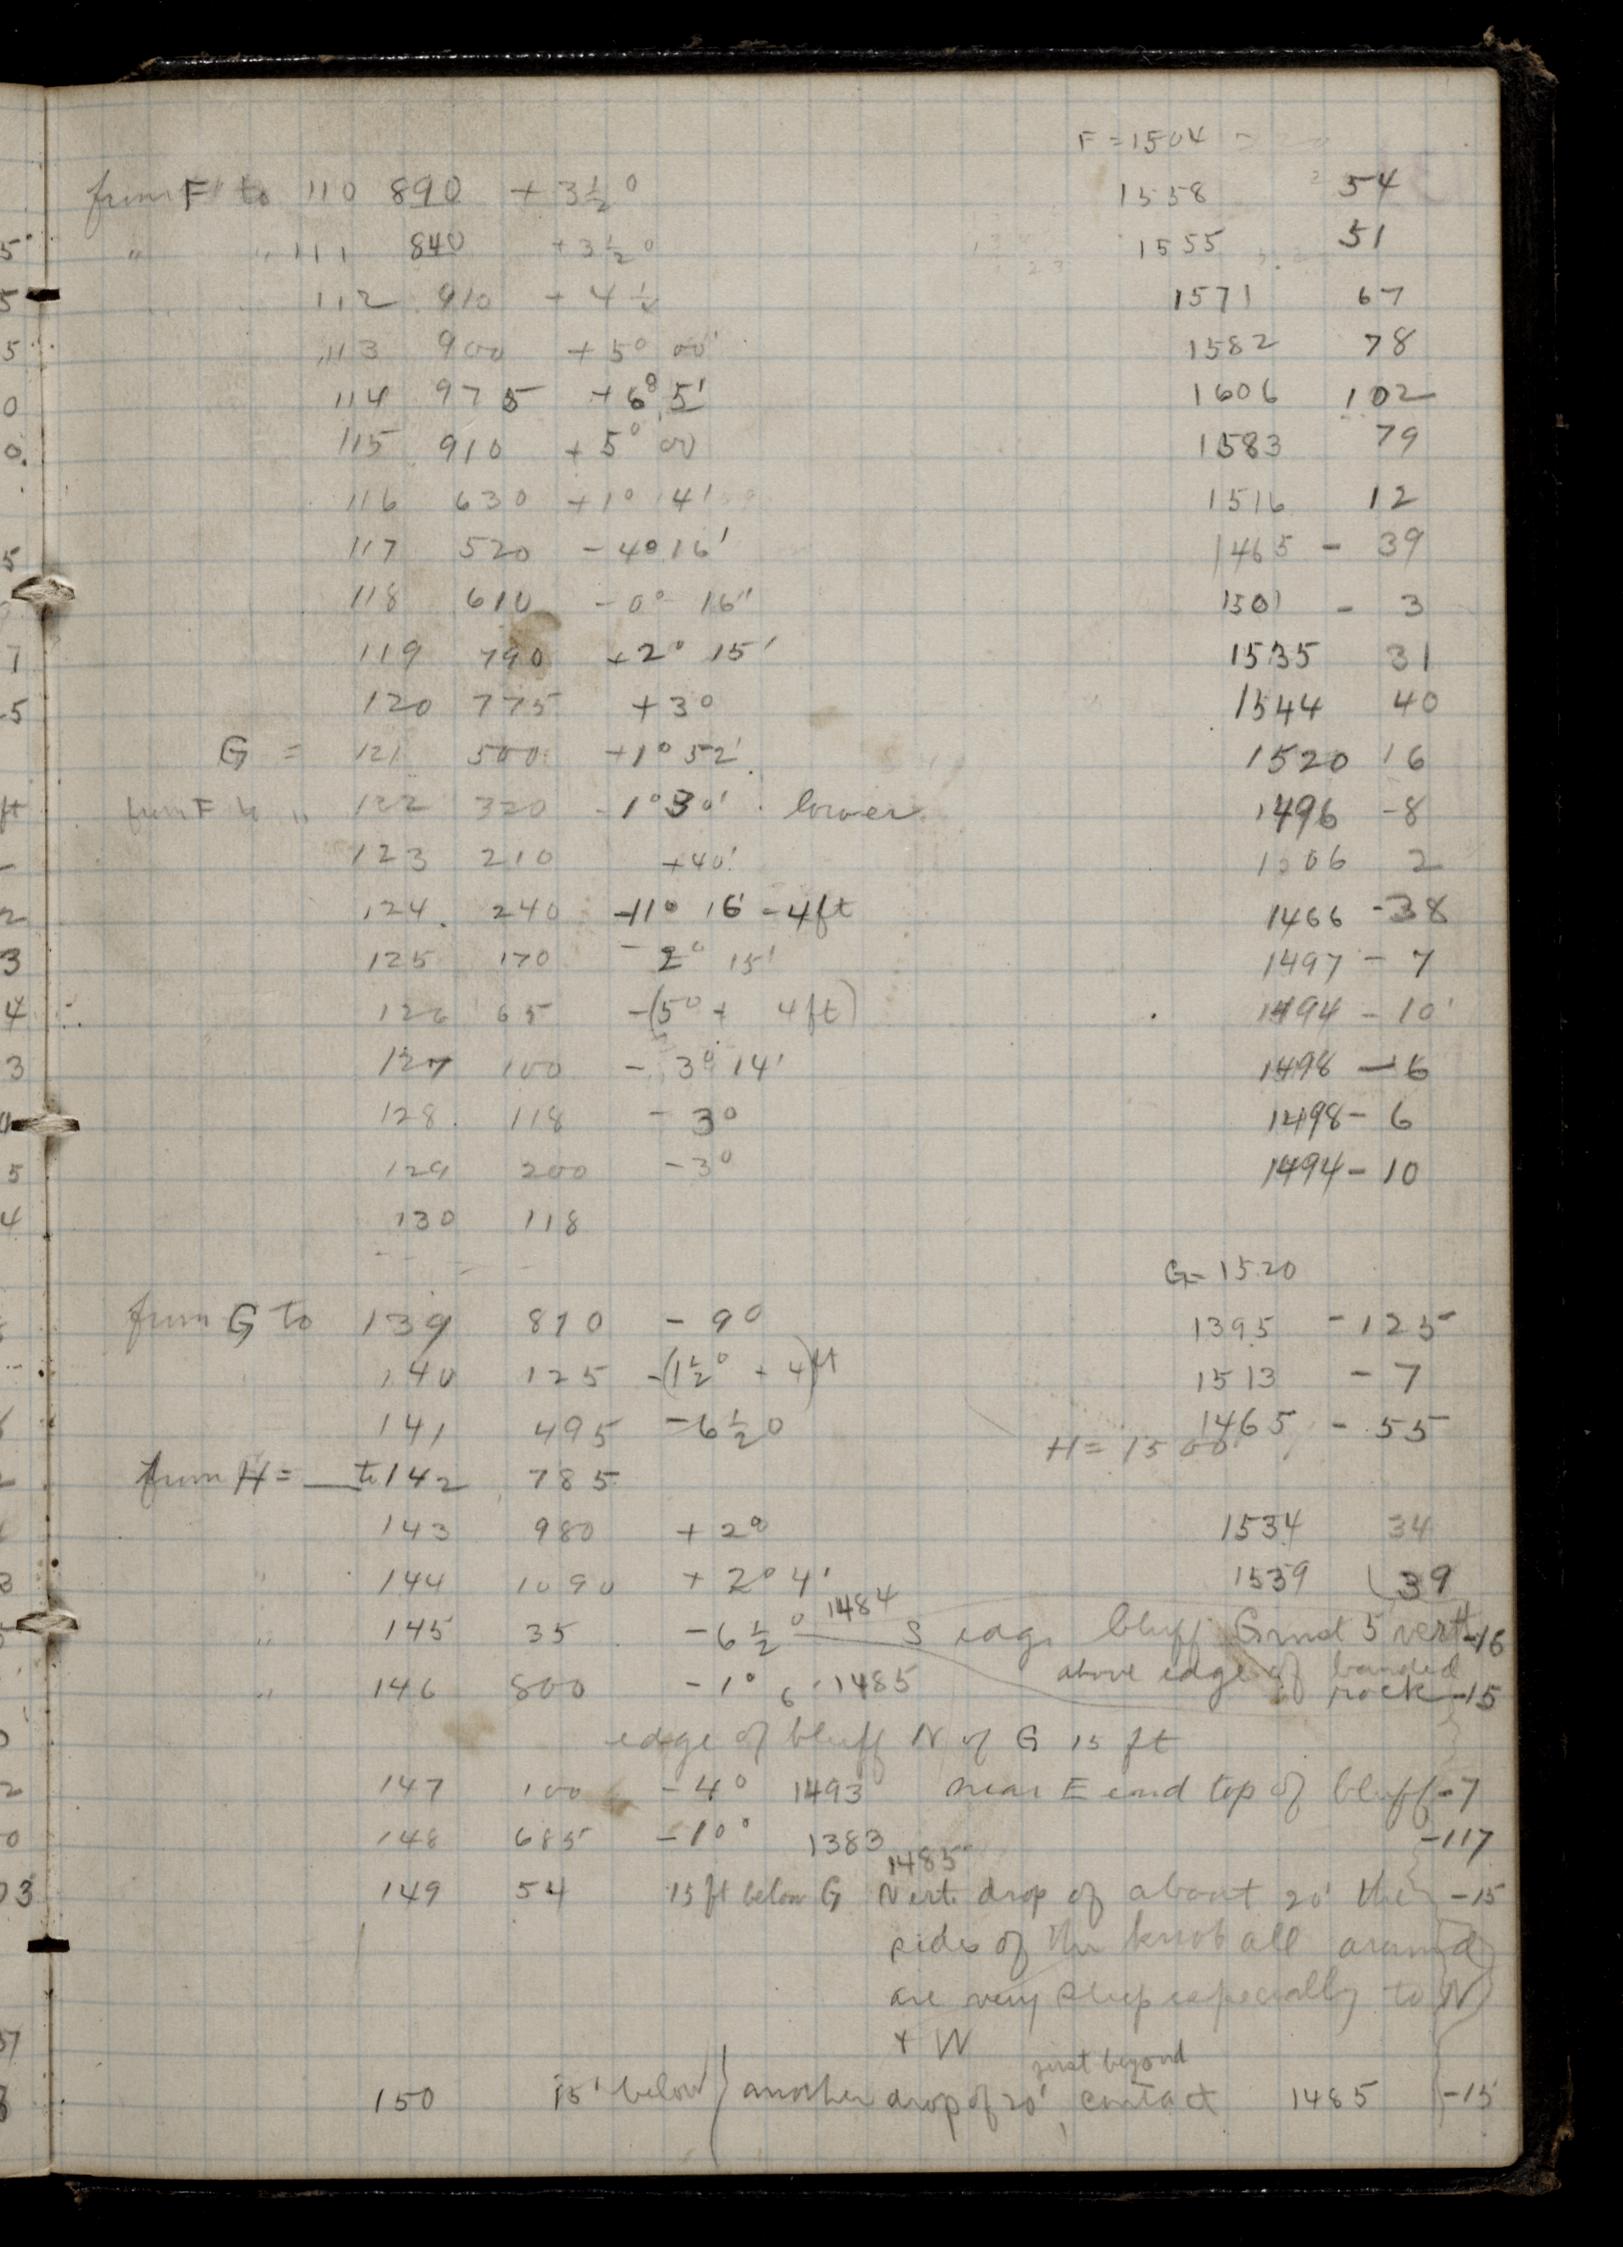 F = 1504
from F to 110 890 + 3 1/2 ° 1558 54
" " 111 840 + 3 1/2 ° 1555 51
112 910 + 4 1/2 1571 67
113 900 + 5° 00' 1582 78
114 975 + 6° 5' 1606 102
115 910 + 5° 00 1583 79
116 630 + 1° 4' 1516 12
117 520 - 4° 16' 1465 - 39
118 610 - 0° 16' 1501 - 3
119 790 + 2° 15' 1535 31
120 775 + 3° 1544 40
G = 121 500 + 1° 52' 1520 16
from F to " 122 320 - 1° 30' . lower 1496 -8
123 210 + 40' 1506 2
124 240 -11° 16' - 4 ft 1466 -38
125 170 - 2° 15' 1497 - 7
126 65 -(5° + 4 ft) 1494 - 10
127 100 - 3° 14' 1498 - 6
128 118 - 3° 1498 - 6
129 200 - 3° 1494 - 10
130 118
G = 1520
from G to 139 810 - 9° 1395 - 125
140 125 -(1 1/2 ° + 4) ft 1513 - 7
141 495 - 6 1/2 ° 1465 - 55
H = 1500
from H = __ to 142 785
143 980 + 2° 1534 34
144 1090 + 2° 4' 1539 39
" 145 35 - 6 1/2 ° 1484 S edge bluff G 5 vert -16
" 146 800 - 1° 6 . 1485 above edge of banded rock -15
edge of bluff N of G 15 ft
147 100 - 4° 1493 near E end top of bluff -7
148 685 - 10° 1383 -117
1485
149 54 15 ft below G Vert. drop of about 20' the -15
sides of the knob all around
are very steep especially to N
+ W
just beyond
150 15' below another drop of 20', contact 1485 -15